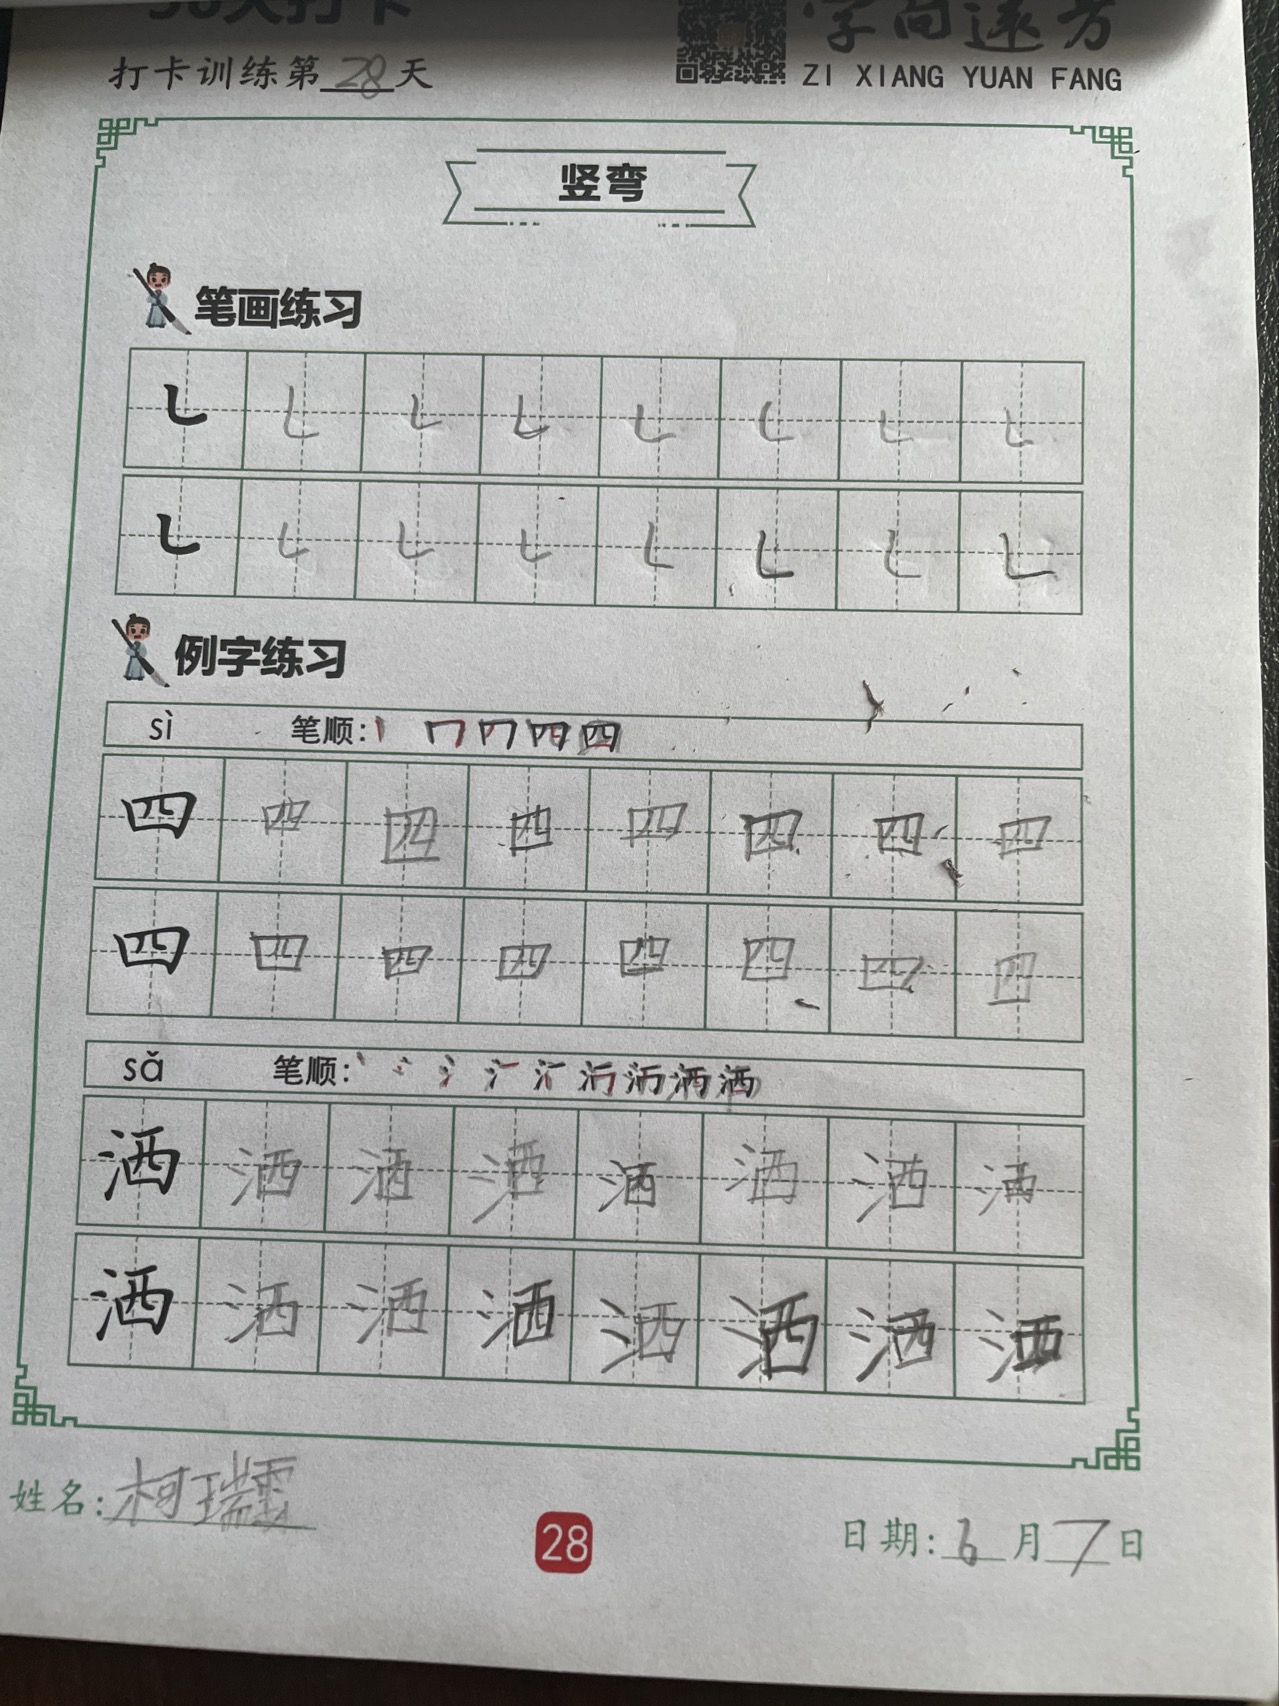 打卡训练第28天
ZI XIANG YUAN FANG
竖弯
笔画练习
㇄ ㇄ ㇄ ㇄ ㇄ ㇄ ㇄ ㇄
㇄ ㇄ ㇄ ㇄ ㇄ ㇄ ㇄ ㇄
例字练习
sì 笔顺:
四 四 四 四 四 四 四 四
四 四 四 四 四 四 四 四
sǎ 笔顺:
洒 洒 洒 洒 洒 洒 洒 洒
洒 洒 洒 洒 洒 洒 洒 洒
姓名:柯瑞
28
日期:6月7日